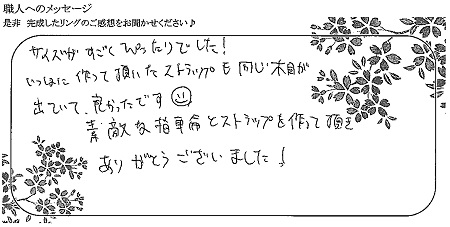 職人へのメッセージ
是非 完成したリングのご感想をお聞かせください♪
サイズがすごくぴったりでした!
いっしょに作って頂いたストラップも同じ木目が
出ていて、良かったです☺
素敵な指輪とストラップを作って頂き
ありがとうございました!